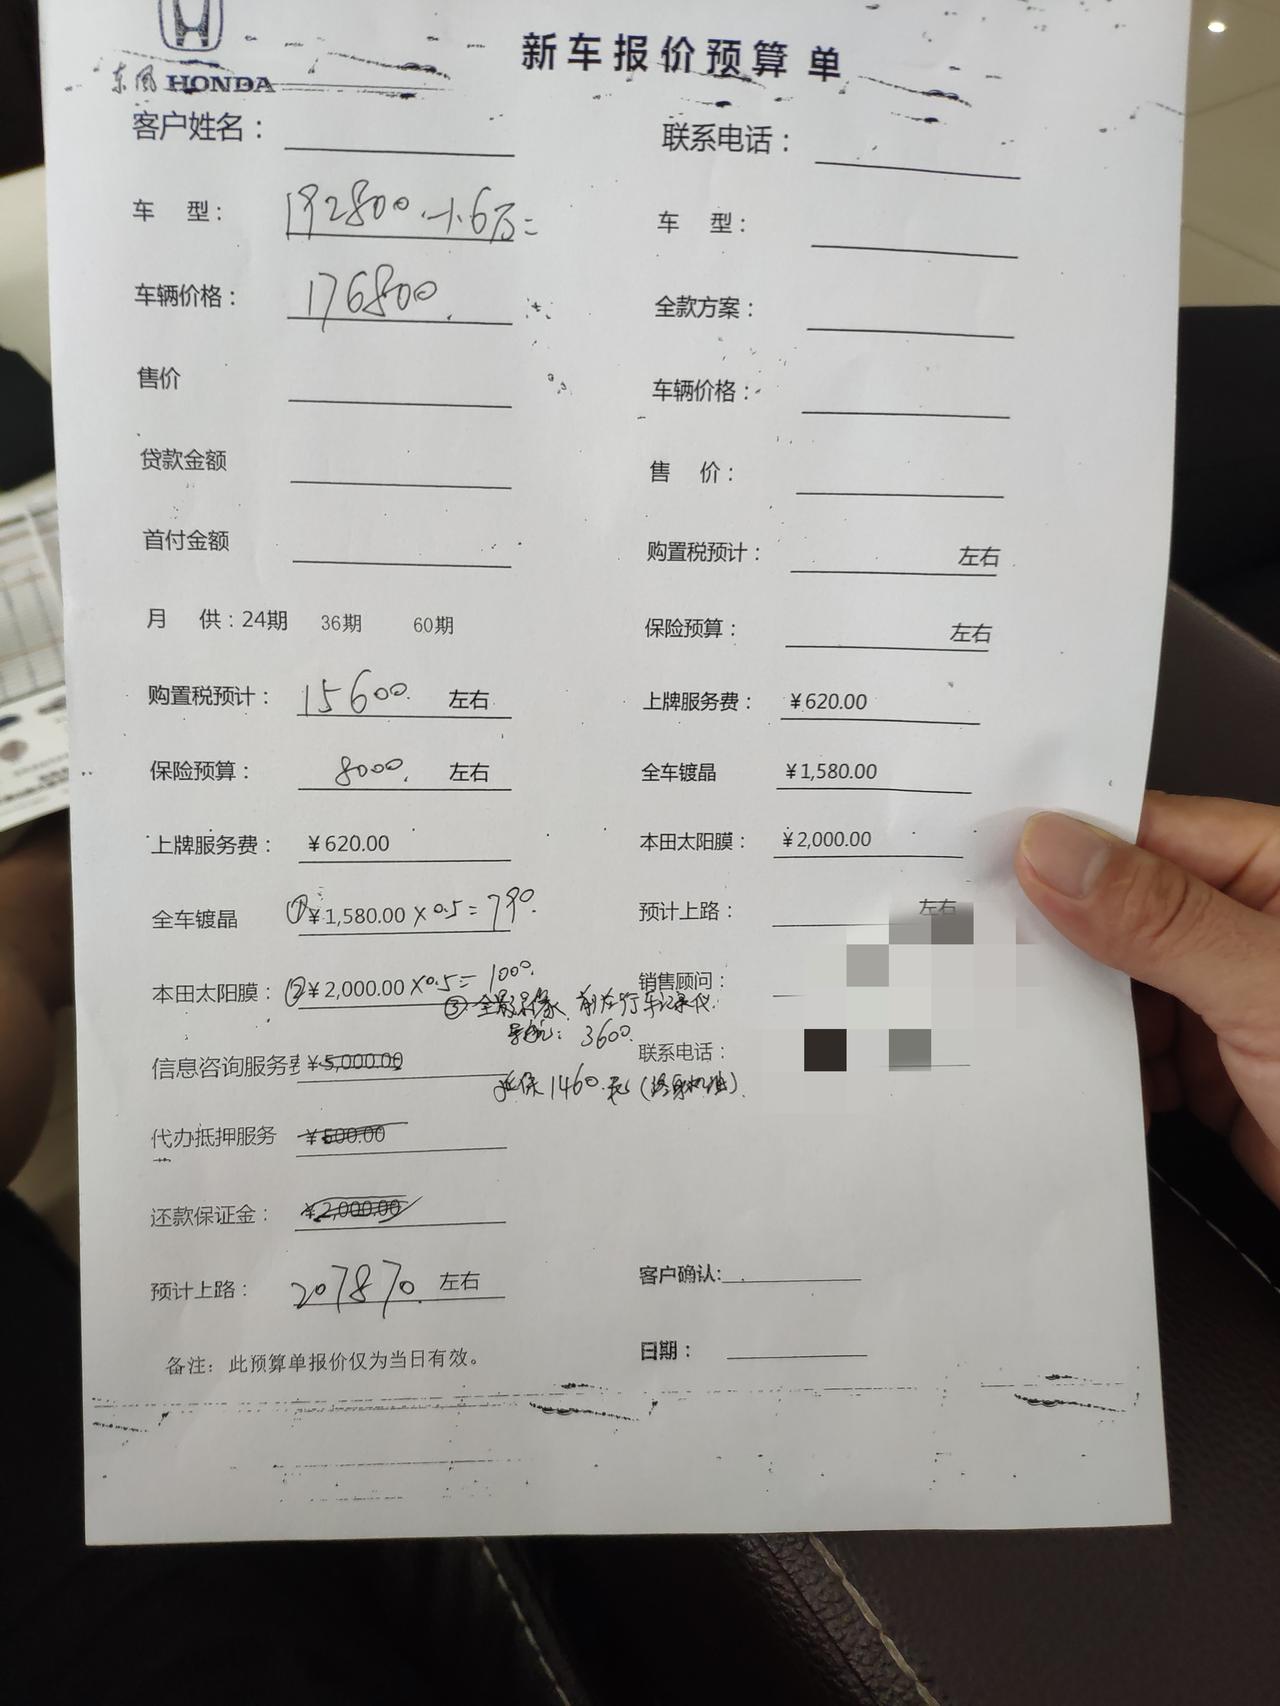 新车报价预算单
东风 HONDA
客户姓名：
联系电话：
车 型： 192800.-1.6万=
车 型：
车辆价格： 176800.
全款方案：
售价
车辆价格：
贷款金额
售 价：
首付金额
购置税预计： 左右
月 供：24期 36期 60期
保险预算： 左右
购置税预计： 15600. 左右
上牌服务费： ￥620.00
保险预算： 8000. 左右
全车镀晶 ￥1,580.00
上牌服务费： ￥620.00
本田太阳膜： ￥2,000.00
全车镀晶 ①￥1,580.00×0.5=790.
预计上路： 左右
本田太阳膜： ②￥2,000.00×0.5=1000.
销售顾问：
③全景影像、前后行车记录仪.
导航：3600.
联系电话：
信息咨询服务费 ￥5,000.00
延保1460.元(终身机油).
代办抵押服务 ￥500.00
还款保证金： ￥2,000.00
预计上路： 207870. 左右
客户确认:
备注：此预算单报价仅为当日有效。
日期：